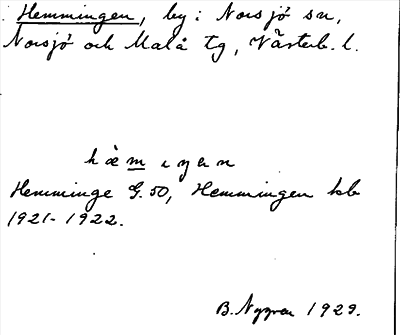 Hemmingen, by i Norsjö sn,
Norsjö och Malå tg, Västerb. l.
hæmıŋen
Hemminge G. 50, Hemmingen kb
1921-1922.
B. Nygren 1929.